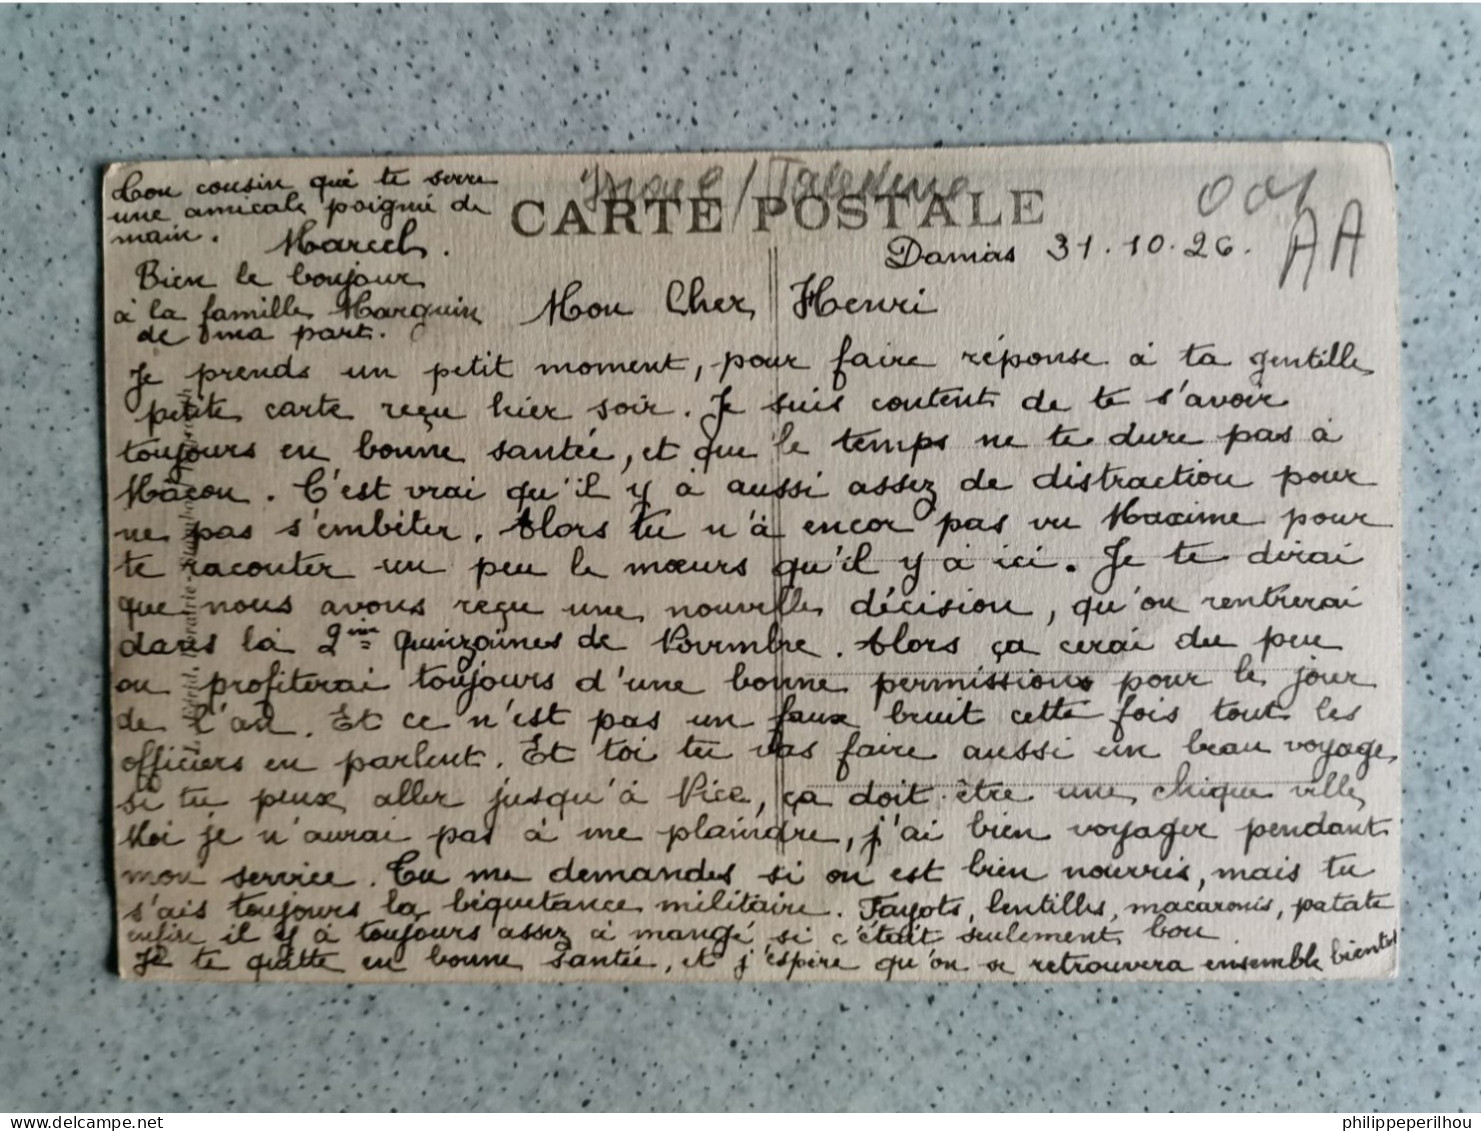 CARTE POSTALE
Damas 31.10.26.
AA
Mon Cher Henri
Je prends un petit moment, pour faire réponse à ta gentille
petite carte reçu hier soir. Je suis content de te s'avoir
toujours en bonne santée, et que le temps ne te dure pas à
Mâcon. C'est vrai qu'il y à aussi assez de distraction pour
ne pas s'embêter. Alors tu n'à encor pas vu Maxime pour
te raconter un peu le mœurs qu'il y à ici. Je te dirai
que nous avons reçu une nouvelle décision, qu'on rentrerai
dans la 2ème quinzaines de Novembre. Alors ça cerai du peu
on profiterai toujours d'une bonne permissions pour le jour
de l'an. Et ce n'est pas un faux bruit cette fois tout les
officiers en parlent. Et toi tu vas faire aussi un beau voyage
si tu peux aller jusqu'à Nice, ça doit être une chique ville
Moi je n'aurai pas à me plaindre, j'ai bien voyager pendant
mon service. Tu me demandes si on est bien nourris, mais tu
s'ais toujours la béquetance militaire. Fayots, lentilles, macaronis, patate
enfin il y à toujours assez à mangé si c'était seulement bon.
Je te quitte en bonne santée, et j'espère qu'on se retrouvera ensemble bientôt
Ton cousin qui te serre
une amicale poignié de
main. Marcel.
Bien le bonjour
à la famille Marguin
de ma part.
philippeperilhou